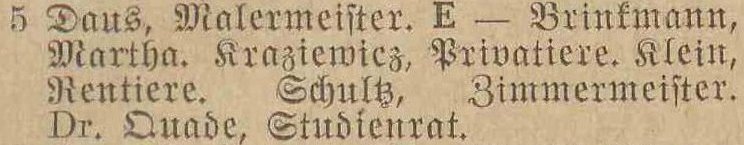 5 Daus, Malermeiſter. E — Brinkmann,
Martha. Kraziewicz, Privatiere. Klein,
Rentiere. Schultz, Zimmermeiſter.
Dr. Quade, Studienrat.